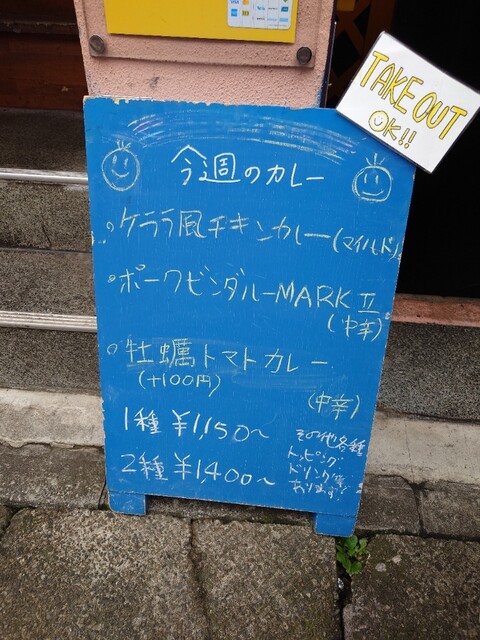 TAKE OUT
OK!!
今週のカレー
。ケララ風チキンカレー(マイルド)
。ポークビンダルーMARKⅡ
(中辛)
。牡蠣トマトカレー
(+100円)
(中辛)
1種 ¥1,150〜
2種 ¥1,400〜
その他各種
トッピング・
ドリンク等
あります!